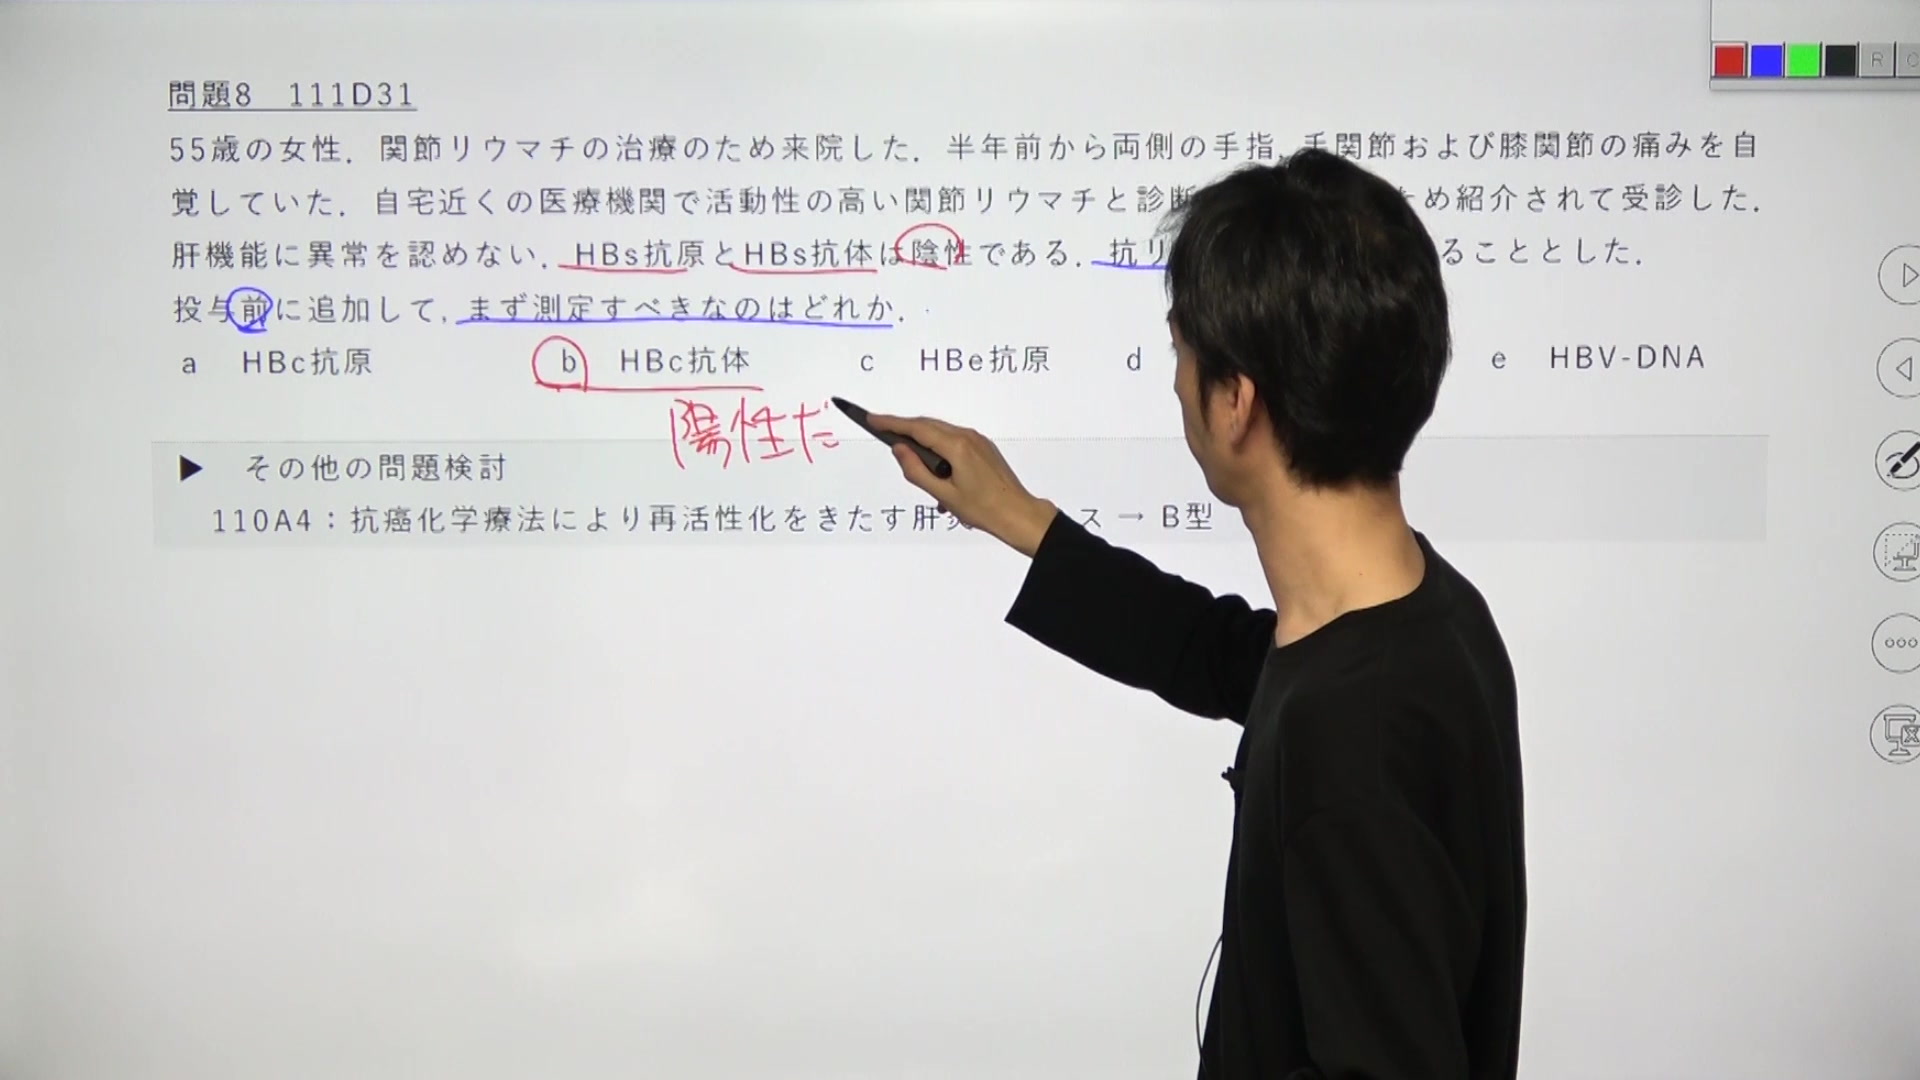 問題8 111D31
55歳の女性．関節リウマチの治療のため来院した．半年前から両側の手指，手関節および膝関節の痛みを自
覚していた．自宅近くの医療機関で活動性の高い関節リウマチと診断 ため紹介されて受診した．
肝機能に異常を認めない．HBs抗原とHBs抗体は陰性である．抗リ ることとした．
投与前に追加して，まず測定すべきなのはどれか．
a HBc抗原 b HBc抗体 c HBe抗原 d e HBV-DNA
陽性だ
▶ その他の問題検討
110A4：抗癌化学療法により再活性化をきたす肝炎 ス → B型
R C